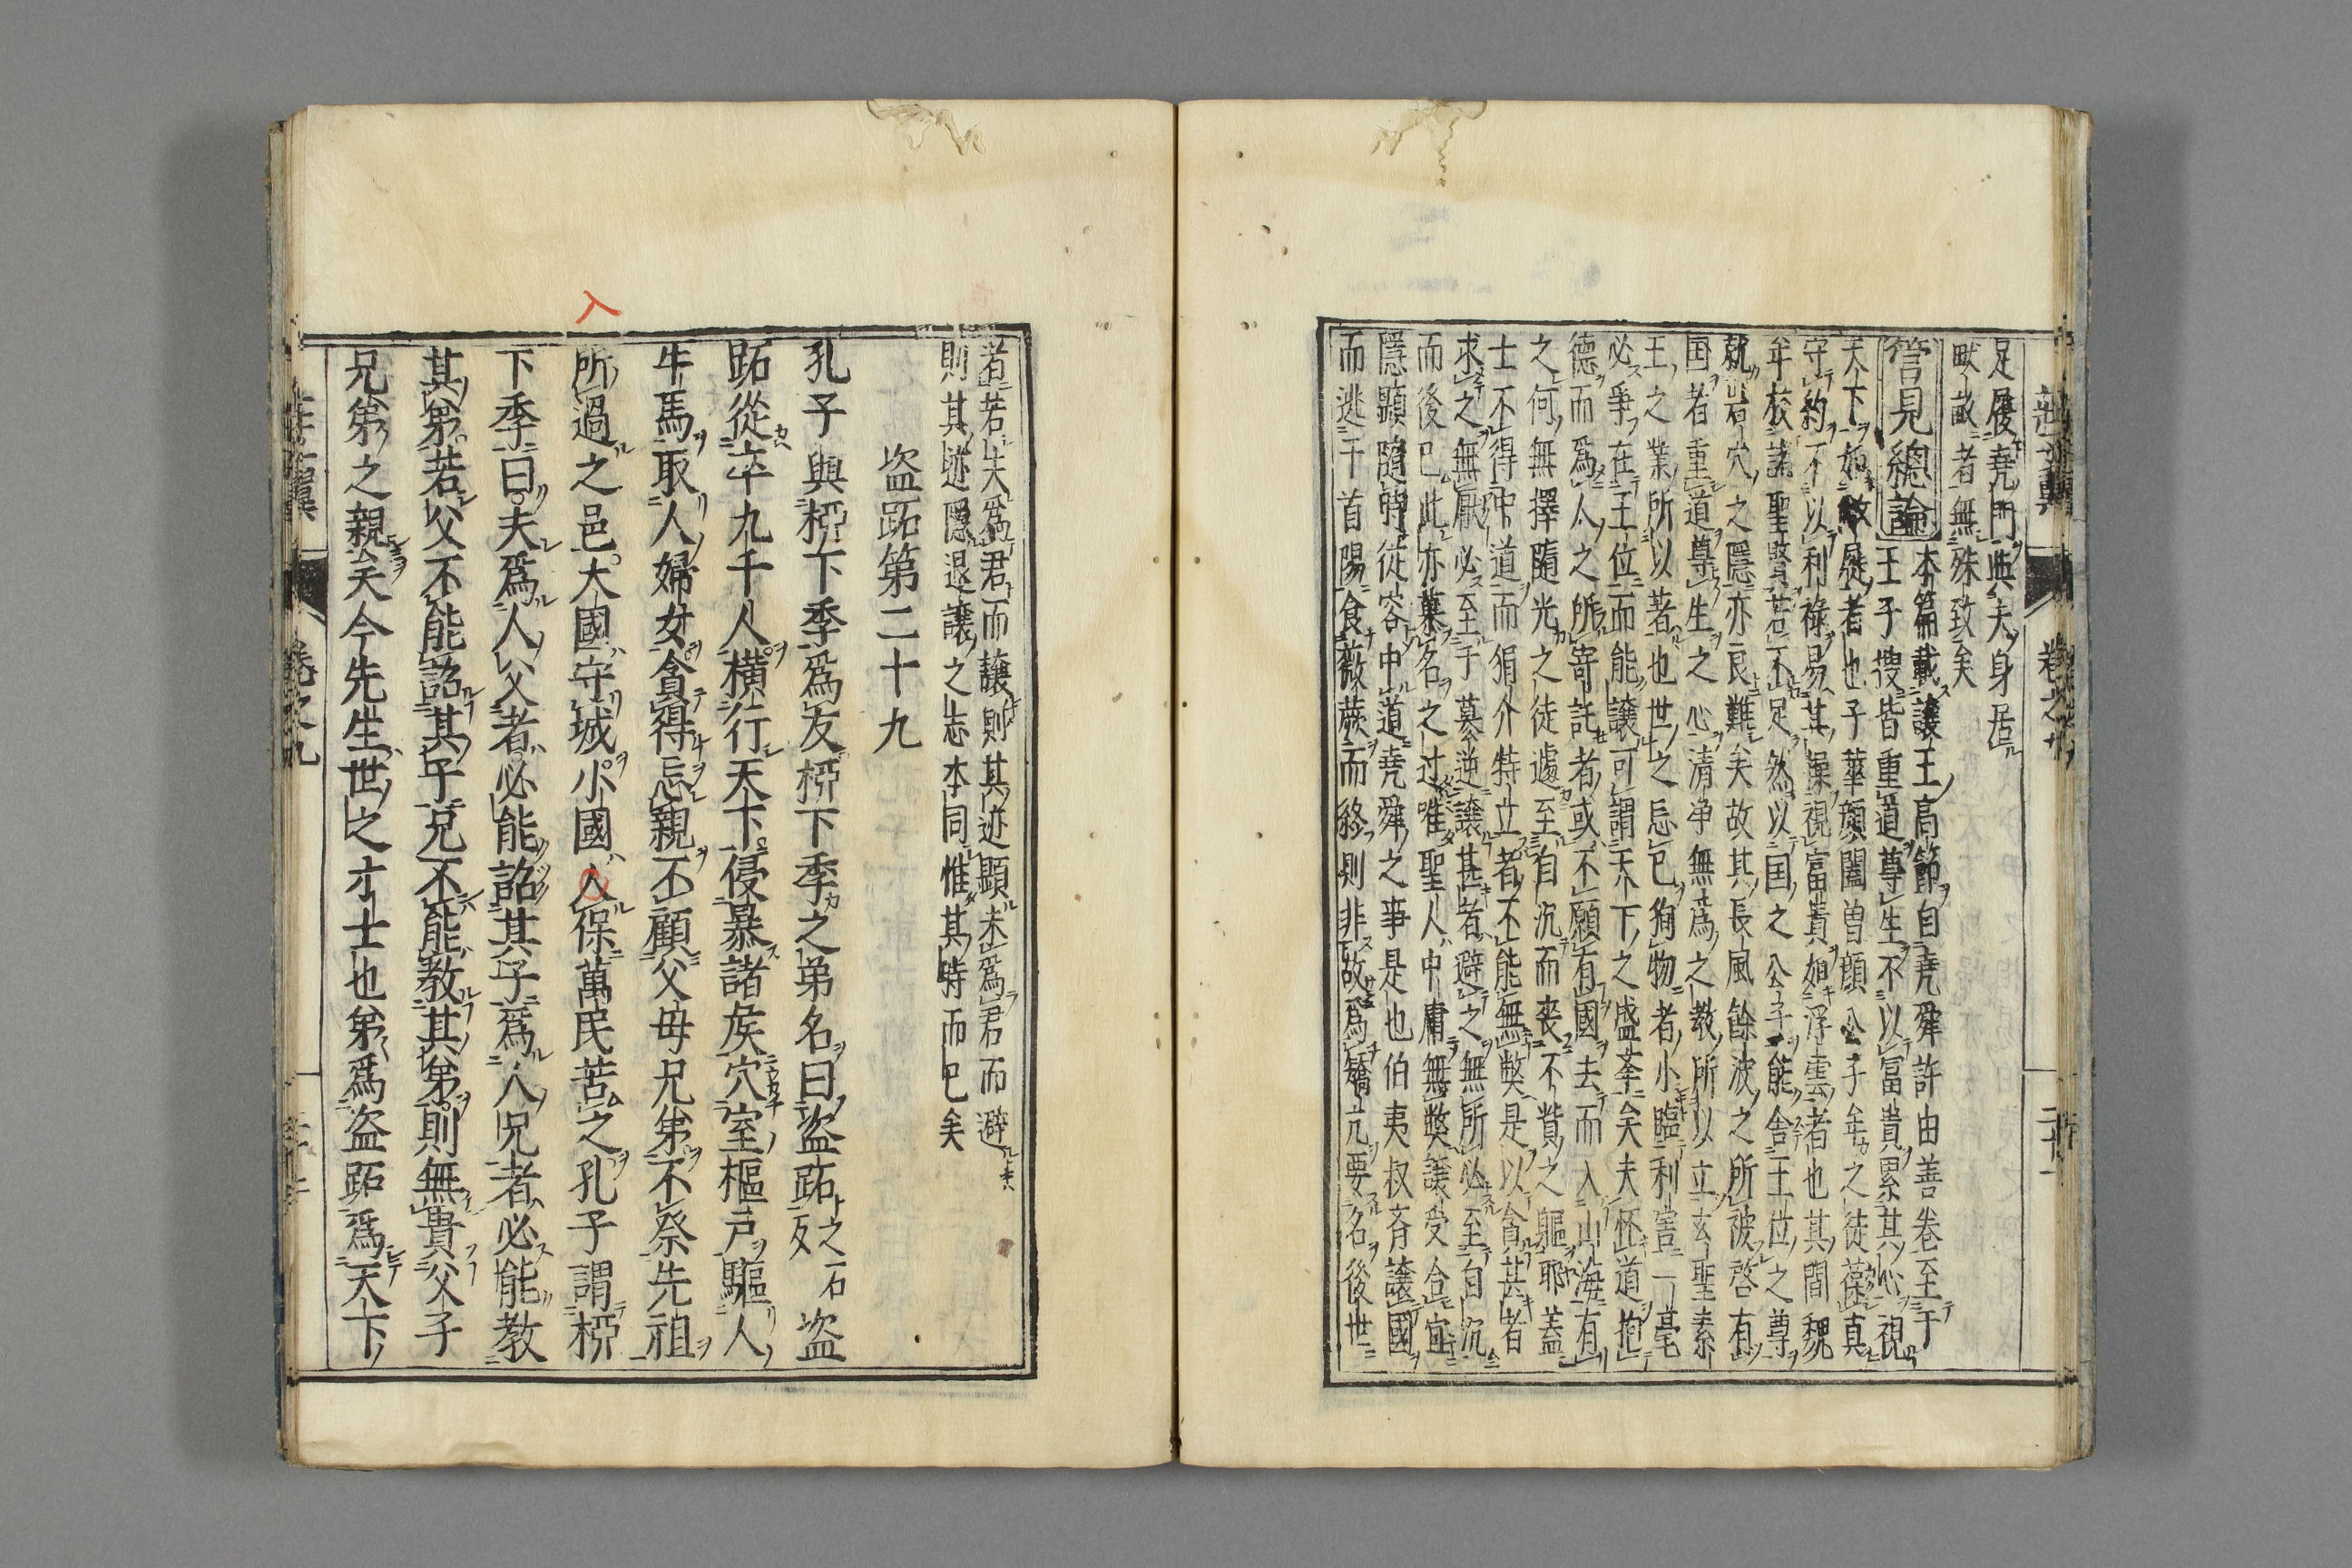 足履堯門與夫身居
畎畝者無殊致矣
管見總論 本篇載讓王高節自堯舜許由善卷至于
王子搜皆重道尊生不以富貴累其心視
天下如敝屣者也子華顔闔曽顔公子牟之徒葆真
守約不以利祿易其操視富貴如浮雲者也其間魏
牟校諸聖賢若不足然以国之公子能舎王位之尊
就岩穴之隱亦良難矣故其長風餘波之所被啓有
国者重道尊生之心清净無為之教所以立玄聖素
王之業所以著也世之忘已狥物者小臨利害一毫
必爭在王位而能讓可謂天下之盛莑矣夫怀道抱
德而為人之所寄託者或不願有國去而入山海有
之何無擇隨光之徒遽至自沉而丧不貲之軀耶蓋
士不得中道而狷介特立者不能無獘是以貪甚者
求之無厭必至于篡逆讓甚者避之無所必至自沉
而後已此亦菓名之过唯聖人中庸無獘讓受合宜
隱顯隨時從容中道堯舜之事是也伯夷叔斉讓國
而逃干首陽食薇蕨而終則非故為矯亢要名後世
者若夫為君而讓則其迹顯未為君而避
則其迹隱退讓之志本同惟其時而已矣
盗跖第二十九
孔子與桺下季為友桺下季之弟名曰盗跖之石反盗
跖從卒九千人橫行天下侵暴諸矦穴室樞户驅人
牛馬取人婦女貪得忘親不顧父母兄弟不祭先祖
所過之邑大國守城小國入保萬民苦之孔子謂桺
下季曰夫為人父者必能詔其子為人兄者必能教
其弟若父不能詔其子兄不能教其弟則無貴父子
兄弟之親矣今先生世之才士也弟為盗跖為天下
入